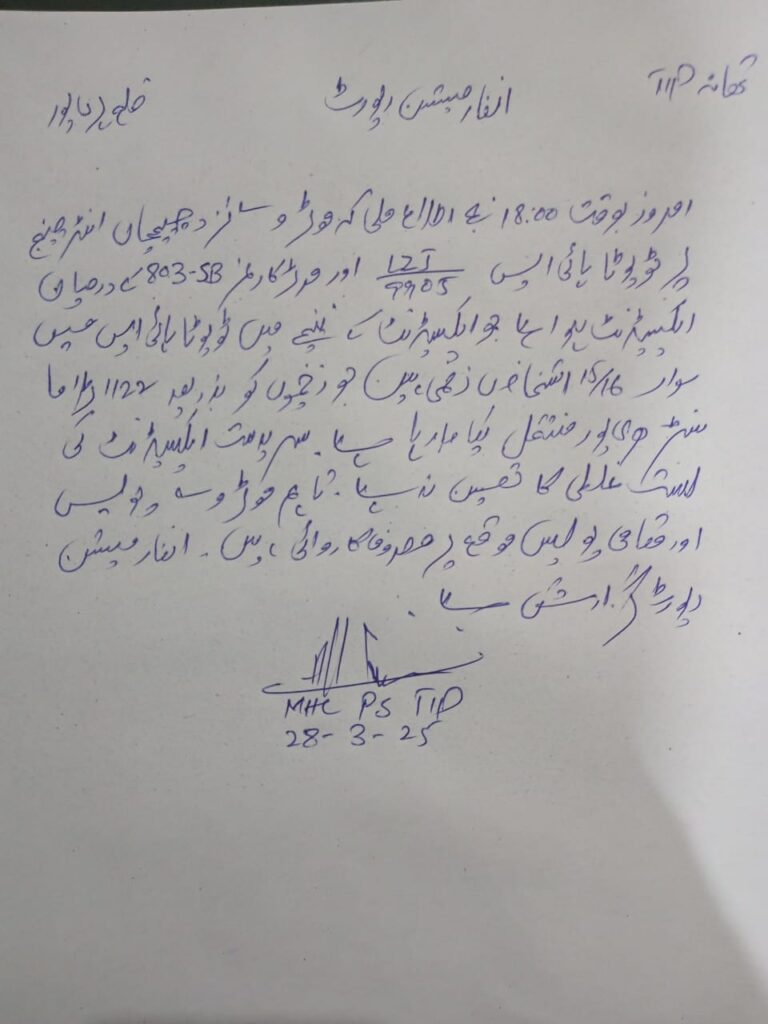 تھانہ TIP انفارمیشن رپورٹ ضلع ہری پور
امروز بوقت 18:00 بجے اطلاع ملی کہ موٹر وے انٹر چینج
پر ٹویوٹا ہائی ایس LZJ 9905 اور موٹر کار نمبر 803-SB کے درمیان
ایکسیڈنٹ ہوا ہے جو ایکسیڈنٹ کے نتیجے میں ٹویوٹا ہائی ایس میں
سوار 15/16 اشخاص زخمی ہیں جو زخمیوں کو بذریعہ 1122 ٹراما
سنٹر ہری پور منتقل کیا جا رہا ہے۔ سر دست ایکسیڈنٹ کی
نسبت غلطی کا تعین نہ ہے۔ تاہم موٹر وے پولیس
اور مقامی پولیس موقع پر مصروف کاروائی ہیں۔ انفارمیشن
رپورٹ گزارش ہے۔
MHC PS TIP
28-3-25